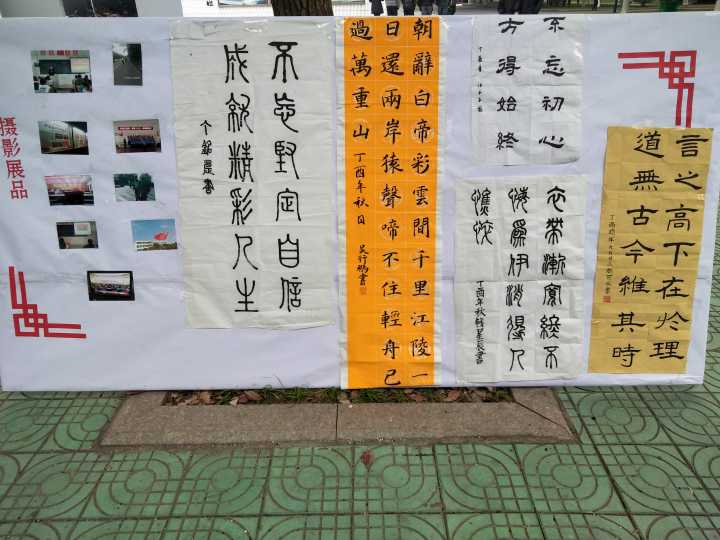 摄影展品
不忘堅定自信
成就精彩人生
朝辭白帝彩雲間千里江陵一
日還兩岸猿聲啼不住輕舟已
過萬重山 丁酉年秋日
不忘初心
方得始終
衣帶漸寬終不
悔爲伊消得人
憔悴 丁酉年秋
言之高下在於理
道無古今維其時